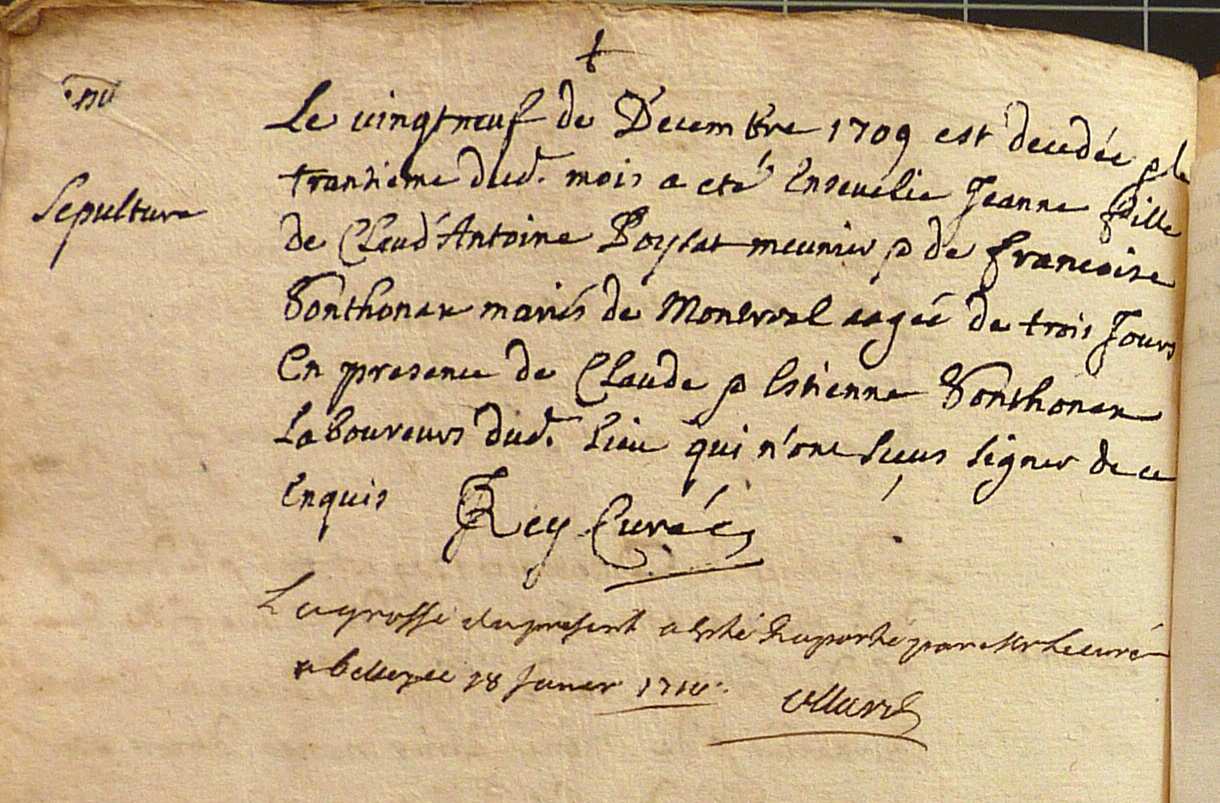 Sepulture
Le vingtneuf de Decembre 1709 est decedée & le
trantieme dud. mois a eté Ensevelie Jeanne fille
de Claud'Antoine meunier & de francoise
Ponthonar mariés de aagée de trois Jours
En presence de Claude & Estienne Ponthonar
Laboureurs dud. Lieu qui n'ont sceus signer de ce
Enquis Rey Curé
La grosse du present a esté Raporté par Mr le curé
a belley ce 18 Janer 1710